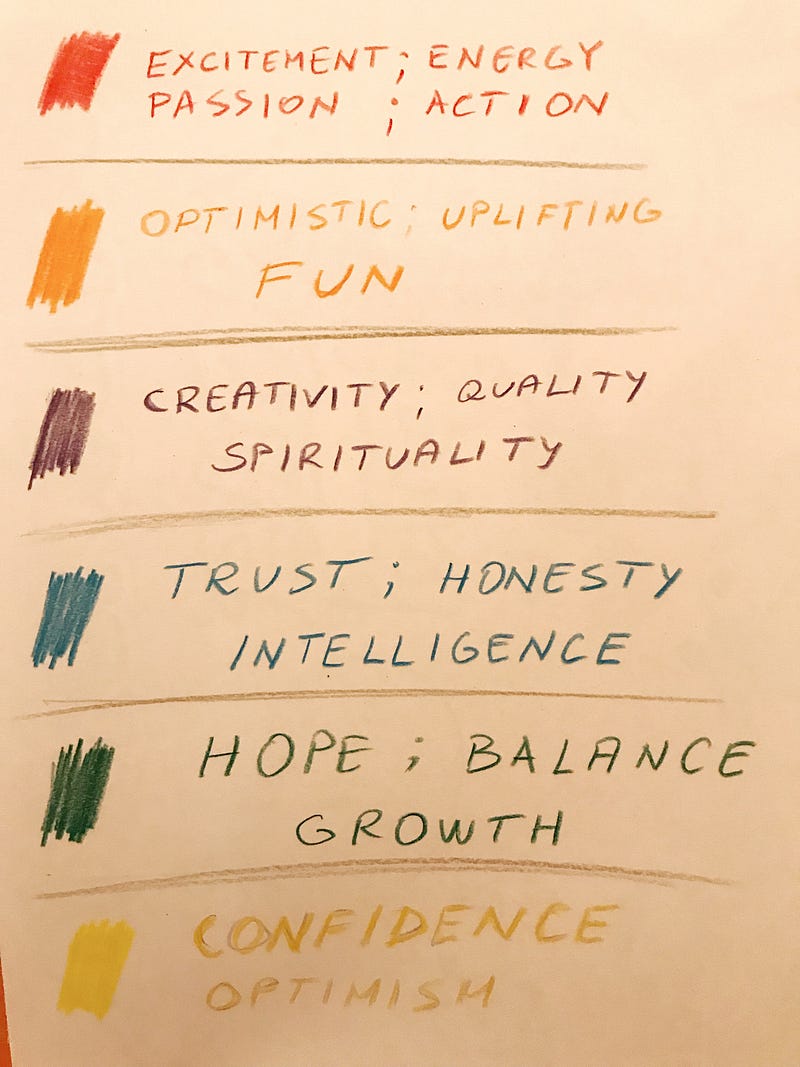 EXCITEMENT; ENERGY
PASSION ; ACTION
OPTIMISTIC; UPLIFTING
FUN
CREATIVITY; QUALITY
SPIRITUALITY
TRUST; HONESTY
INTELLIGENCE
HOPE; BALANCE
GROWTH
CONFIDENCE
OPTIMISM